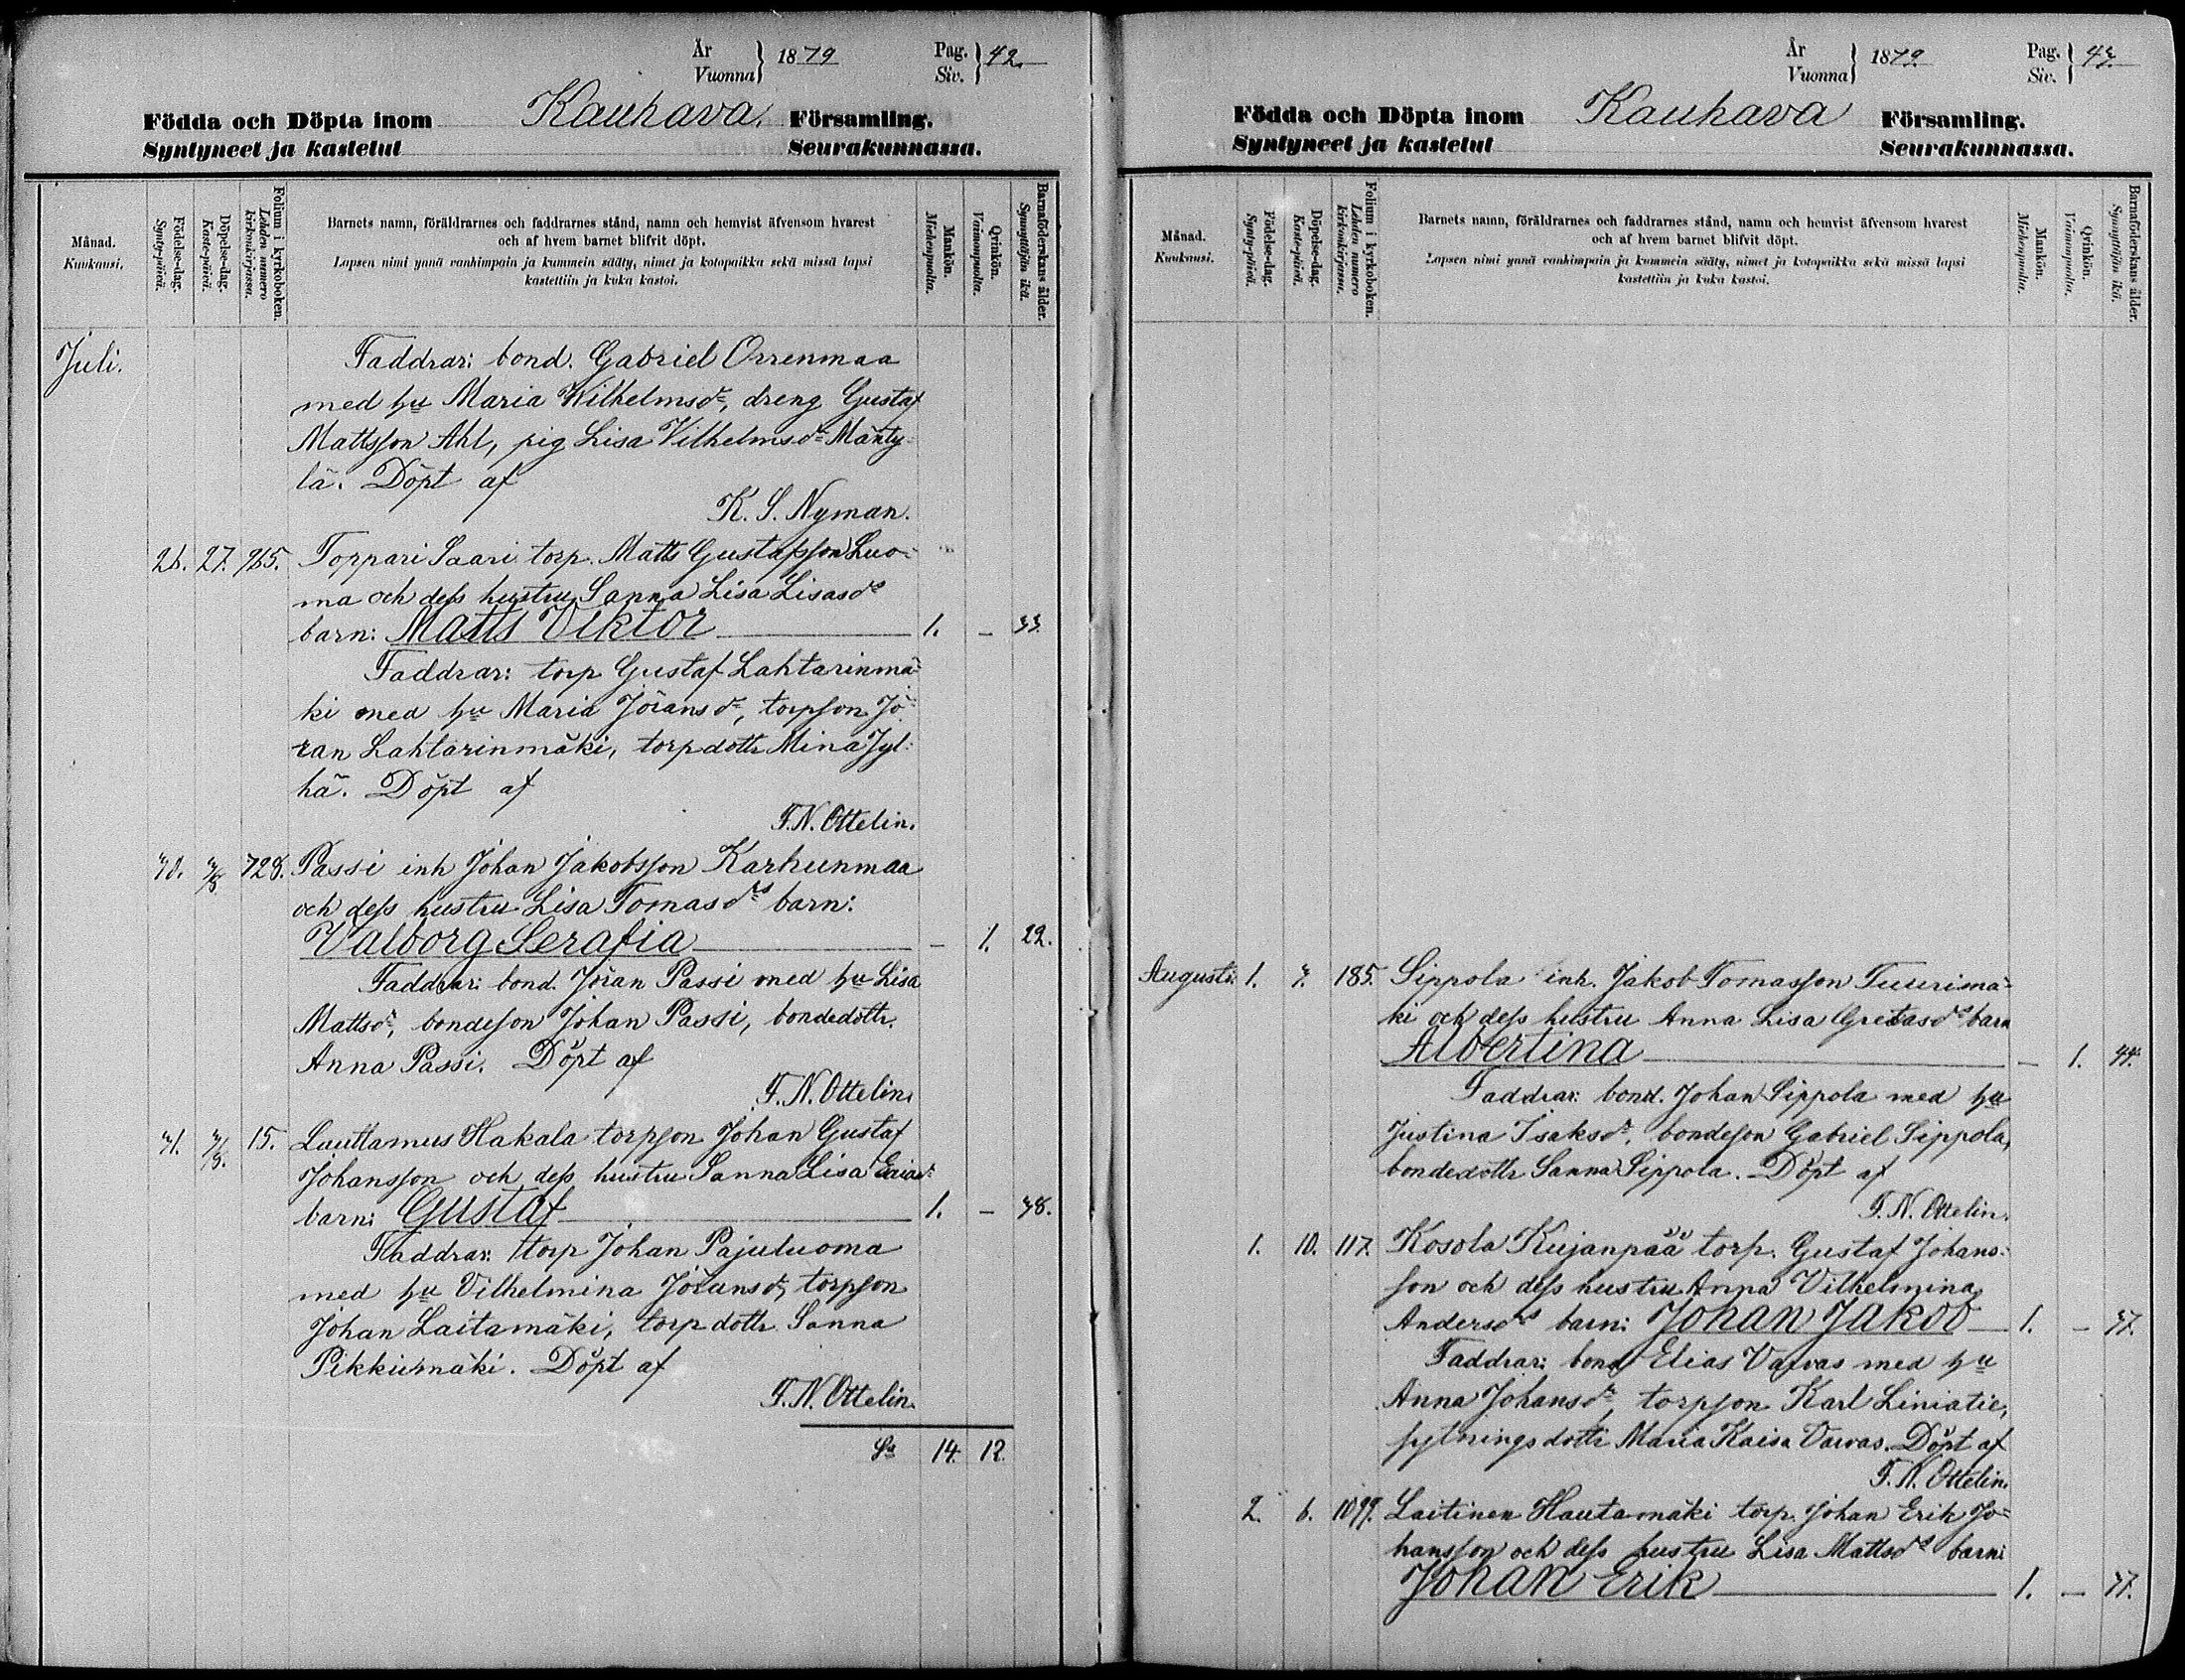 År
Vuonna } 1879 Pag.
Siv. } 42.
Födda och Döpta inom Kauhava. Församling.
Syntyneet ja kastetut Seurakunnassa.
Månad.
Kuukausi.
Födelse-dag.
Synty-päivä.
Döpelse-dag.
Kaste-päivä.
Folium i kyrkoboken.
Lehden numero
kirkonkirjassa.
Barnets namn, föräldrarnes och faddrarnes stånd, namn och hemvist äfvensom hvarest
och af hvem barnet blifvit döpt.
Lapsen nimi ynnä vanhimpain ja kummein sääty, nimet ja kotopaikka sekä missä lapsi
kastettiin ja kuka kastoi.
Mankön.
Miehenpuolia.
Qvinkön.
Vaimonpuolia.
Barnaföderskans ålder.
Synnyttäjän ikä.
Juli. Faddrar: bond. Gabriel Orrenmaa
med hu Maria Wilhelmsdr, dreng Gustaf
Mattsson Ahl, pig Lisa Vilhelmsdr Mänty-
lä. Döpt af
K. S. Nyman.
26. 27. 965. Toppari Saari torp. Matts Gustafsson Luo-
ma och dess hustru Sanna Lisa Lisasds
barn: Matts Viktor 1. — 33.
Faddrar: torp Gustaf Lahtarinmä-
ki med hu Maria Jöransdr, torpson Jö-
ran Lahtarinmäki, torpdottr Mina Jyl-
hä. Döpt af
F. N. Ottelin.
30. 3/8 728. Passi inh Johan Jakobsson Karhunmaa
och dess hustru Lisa Tomasdrs barn:
Valborg Serafia — 1. 22.
Faddrar: bond. Jöran Passi med hu Lisa
Mattsdr, bondeson Johan Passi, bondedottr.
Anna Passi. Döpt af
F. N. Ottelin.
31. 3/8. 15. Lauttamus Hakala torpson Johan Gustaf
Johansson och dess hustru Sanna Lisa
barn: Gustaf 1. — 38.
Faddrar: torp Johan Pajuluoma
med hu Vilhelmina Jöransdr, torpson
Johan Laitamäki, torpdottr Sanna
Pikkumäki. Döpt af
F. N. Ottelin.
Sa 14. 12.
År
Vuonna } 1879. Pag.
Siv. } 43.
Födda och Döpta inom Kauhava Församling.
Syntyneet ja kastetut Seurakunnassa.
Månad.
Kuukausi.
Födelse-dag.
Synty-päivä.
Döpelse-dag.
Kaste-päivä.
Folium i kyrkoboken.
Lehden numero
kirkonkirjassa.
Barnets namn, föräldrarnes och faddrarnes stånd, namn och hemvist äfvensom hvarest
och af hvem barnet blifvit döpt.
Lapsen nimi ynnä vanhimpain ja kummein sääty, nimet ja kotopaikka sekä missä lapsi
kastettiin ja kuka kastoi.
Mankön.
Miehenpuolia.
Qvinkön.
Vaimonpuolia.
Barnaföderskans ålder.
Synnyttäjän ikä.
Augusti. 1. 3. 185. Sippola inh. Jakob Tomasson Tuurimä-
ki och dess hustru Anna Lisa Gretasds barn
Albertina — 1. 44.
Faddrar: bond. Johan Sippola med hu
Justina Isaksdr, bondeson Gabriel Sippola,
bondedottr Sanna Sippola. Döpt af
F. N. Ottelin.
1. 10. 117. Kosola Kujanpää torp. Gustaf Johans-
son och dess hustru Anna Vilhelmina
Andersdrs barn: Johan Jakob 1. — 37.
Faddrar: bond Elias Varvas med hu
Anna Johansdr, torpson Karl Liniatie,
sytningsdottr Maria Kaisa Varvas. Döpt af
F. N. Ottelin.
2. 6. 1099. Laitinen Hautamäki torp. Johan Erik Jo-
hansson och dess hustru Lisa Mattsds barn:
Johan Erik 1. — 37.